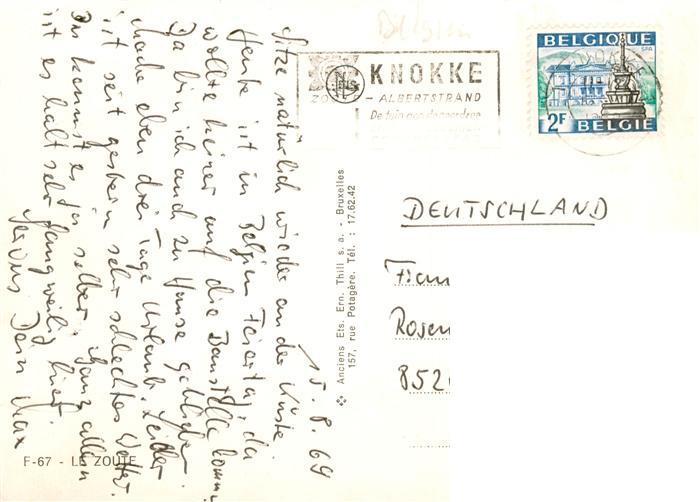 Belgien
KNOKKE
ALBERTSTRAND
De tuin aan de noordzee
BELGIQUE
SPA
2F BELGIE
15.8.69
Sitze natürlich wieder an der Küste.
Heute ist in Belgien Feiertag, da
wollte keiner auf die Baustelle
Da bin ich auch zu Hause geblieben.
Mache eben drei Tage Urlaub. Leider
ist seit gestern sehr schlechtes Wetter.
Du kannst es Dir selber, ganz allein
ist es halt sehr langweilig hier.
Servus Dein Max
Anciens Ets. Ern. Thill s. a. - Bruxelles
157, rue Potagère. Tél. : 17.62.42
DEUTSCHLAND
Rosen
852
F-67 - LE ZOUTE